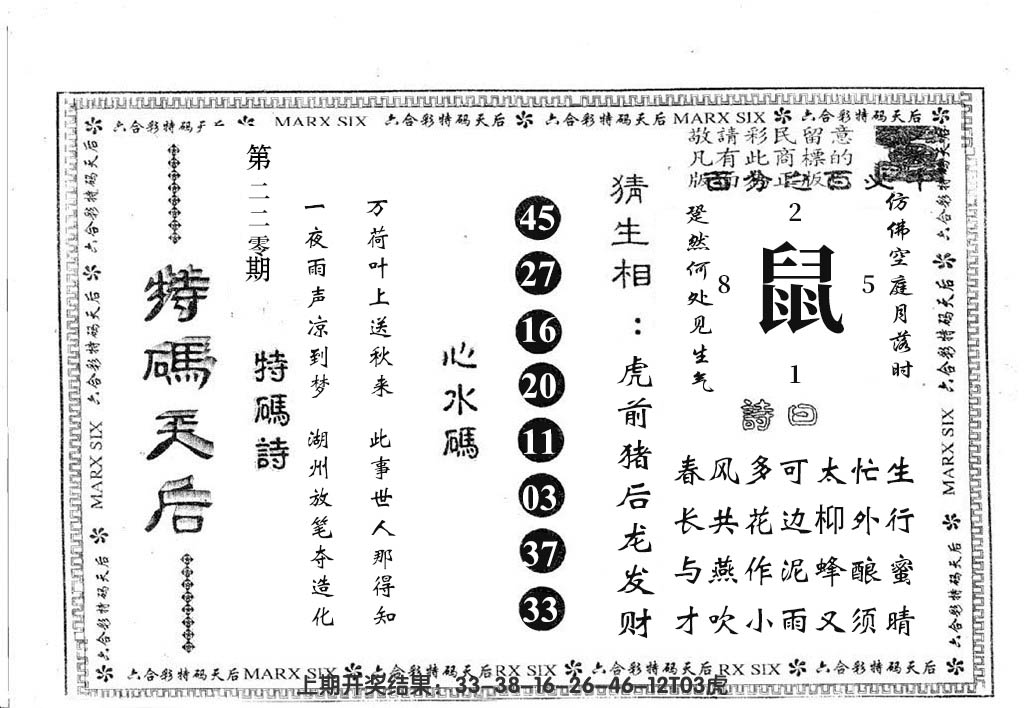 六合彩特码天后 MARX SIX 六合彩特码天后 六合彩特码天后 MARX SIX 六合彩特码天后
敬請彩民留意
凡有此商標的
版面为正版
特碼天后
第二二零期
特碼詩
一夜雨声凉到梦 湖州放笔夺造化
万荷叶上送秋来 此事世人那得知
心水碼
45
27
16
20
11
03
37
33
猜生相:虎前猪后龙发财
跫然何处见生气
2
8
鼠
5
1
仿佛空庭月落时
詩曰
春风多可太忙生
长共花边柳外行
与燕作泥蜂酿蜜
才吹小雨又须晴
六合彩特码天后
MARX SIX
六合彩特码天后
六合彩特码天后
六合彩特码天后
六合彩特码天后
MARX SIX
六合彩特码天后
六合彩特码天后 MARX SIX 六合彩特码天后 RX SIX 六合彩特码天后 RX SIX 六合彩特码天后
上期开奖结果:33-38-16-26-46-12T03虎